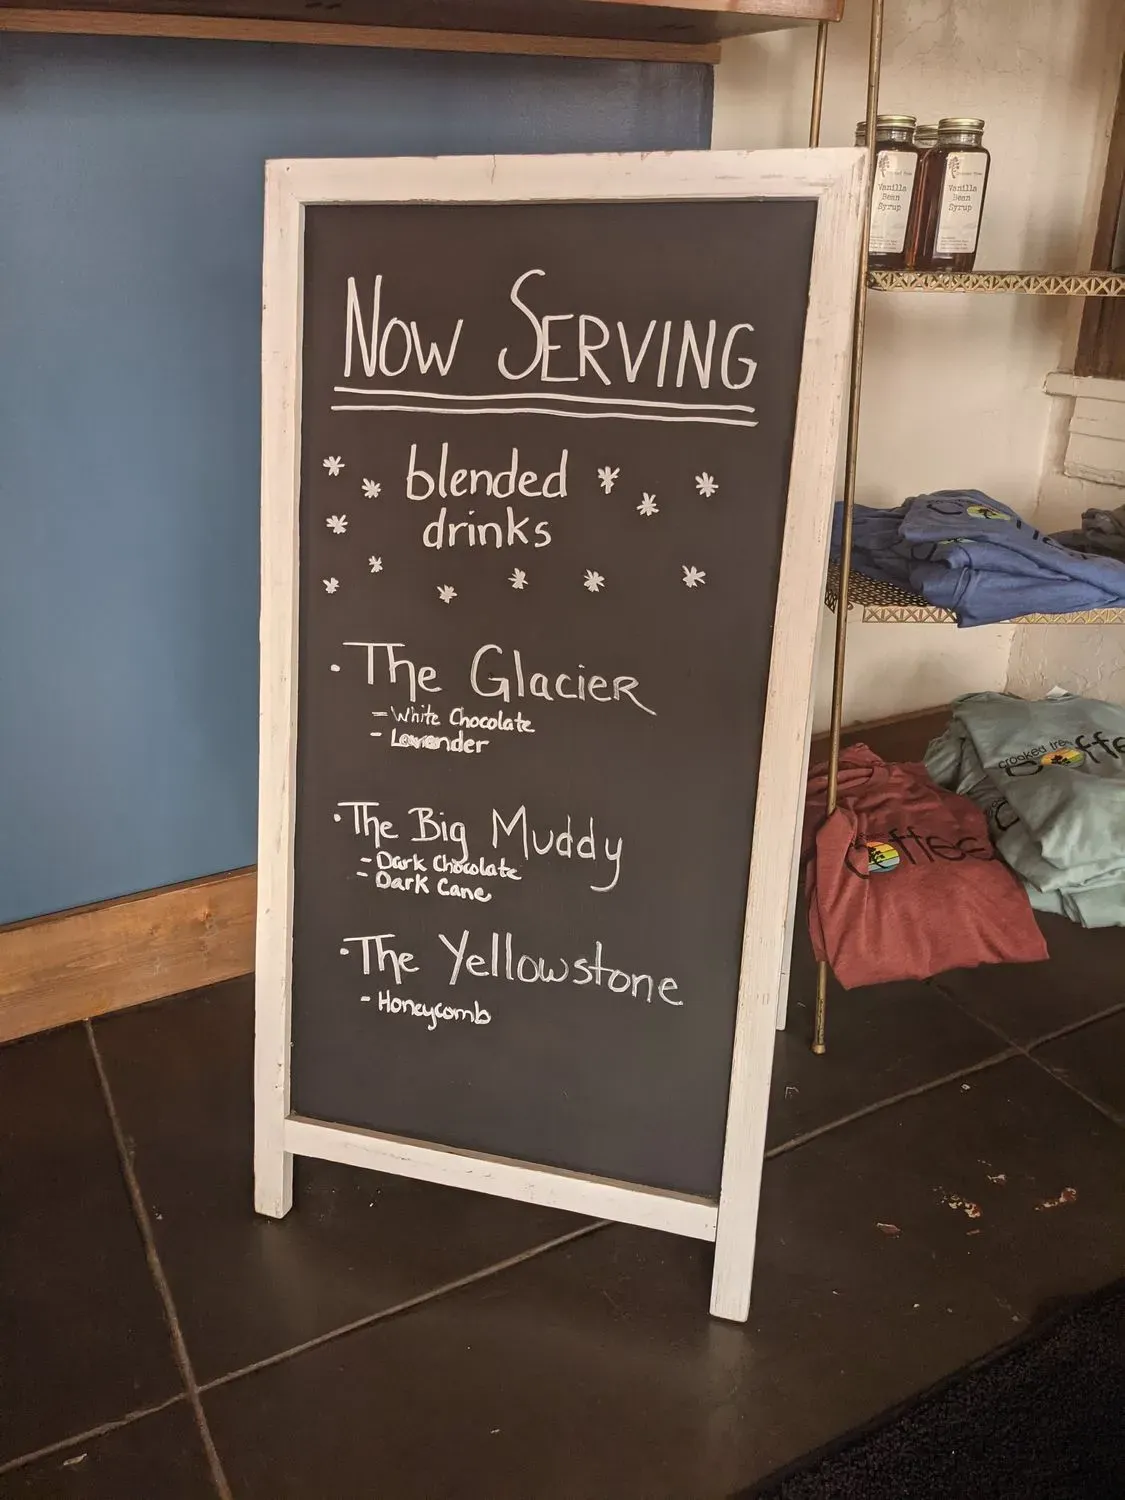 Now Serving
blended
drinks
• The Glacier
- White Chocolate
- Lavender
• The Big Muddy
- Dark Chocolate
- Dark Cane
• The Yellowstone
- Honeycomb
Vanilla
Bean
Syrup
Vanilla
Bean
Syrup
crooked tree
coffee
coffee